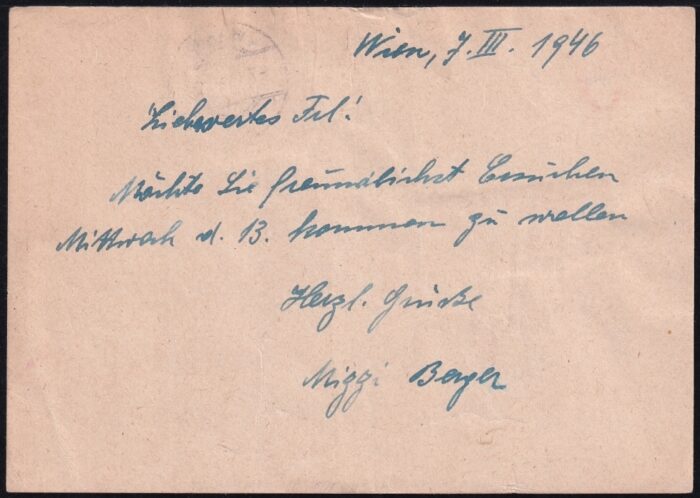 Wien, 7. III. 1946
Liebwertes Frl!
Möchte Sie freundlichst ersuchen
Mittwoch d. 13. kommen zu wollen
Herzl. Grüße
Miggi Berger